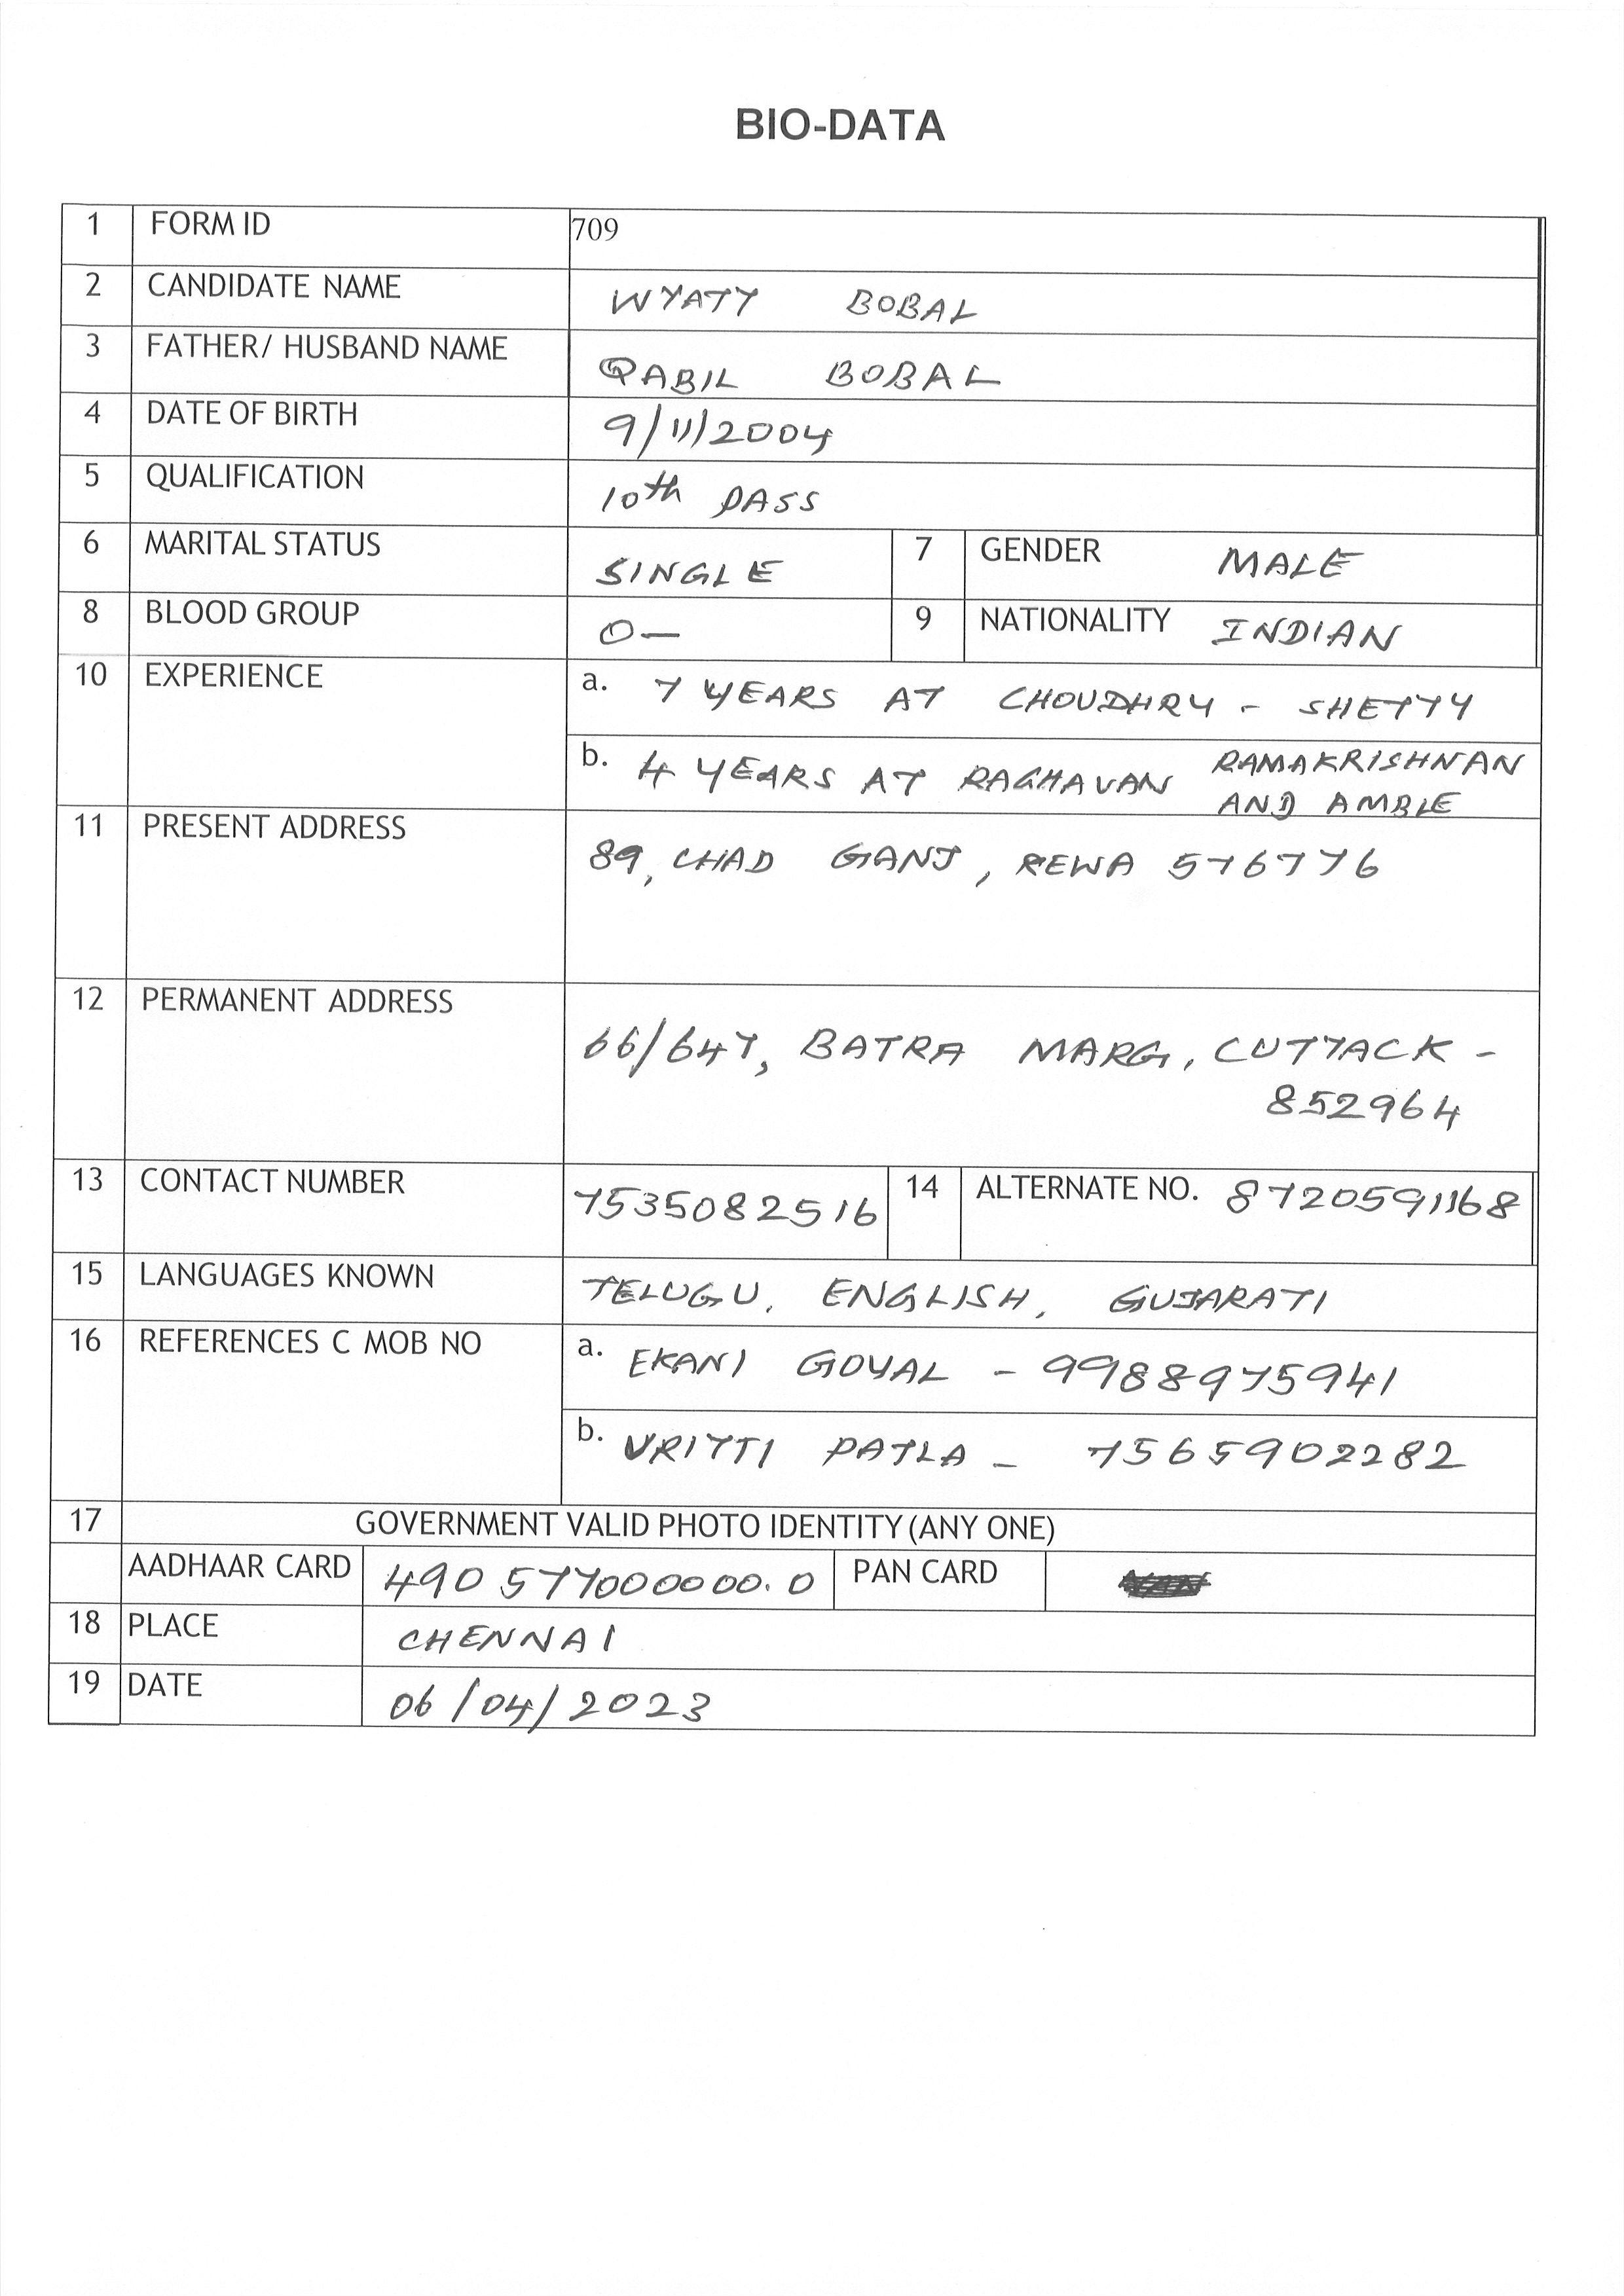 BIO-DATA
1 FORM ID 709
2 CANDIDATE NAME WYATT BOBAL
3 FATHER/ HUSBAND NAME QABIL BOBAL
4 DATE OF BIRTH 9/11/2004
5 QUALIFICATION 10th PASS
6 MARITAL STATUS SINGLE 7 GENDER MALE
8 BLOOD GROUP O- 9 NATIONALITY INDIAN
10 EXPERIENCE a. 7 YEARS AT CHOUDHRY - SHETTY
b. 4 YEARS AT RAGHAVAN RAMAKRISHNAN
AND AMBLE
11 PRESENT ADDRESS
89, CHAD GANJ, REWA 576776
12 PERMANENT ADDRESS
66/647, BATRA MARG, CUTTACK -
852964
13 CONTACT NUMBER 7535082516 14 ALTERNATE NO. 8720591168
15 LANGUAGES KNOWN TELUGU, ENGLISH, GUJARATI
16 REFERENCES C MOB NO a. EKANI GOYAL - 9988975941
b. VRITTI PATLA - 7565902282
17 GOVERNMENT VALID PHOTO IDENTITY (ANY ONE)
AADHAAR CARD 490577000000.0 PAN CARD
18 PLACE CHENNAI
19 DATE 06/04/2023